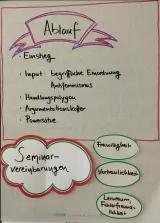 Ablauf
· Einstieg
· Input: begriffliche Einordnung
Antifeminismus
· Handlungspolygon
· Argumentationskoffer
· Powersätze
Seminar-
vereinbarungen
Freiwilligkeit
Vertraulichkeit
Lernraum,
Fehlerfreund-
lichkeit